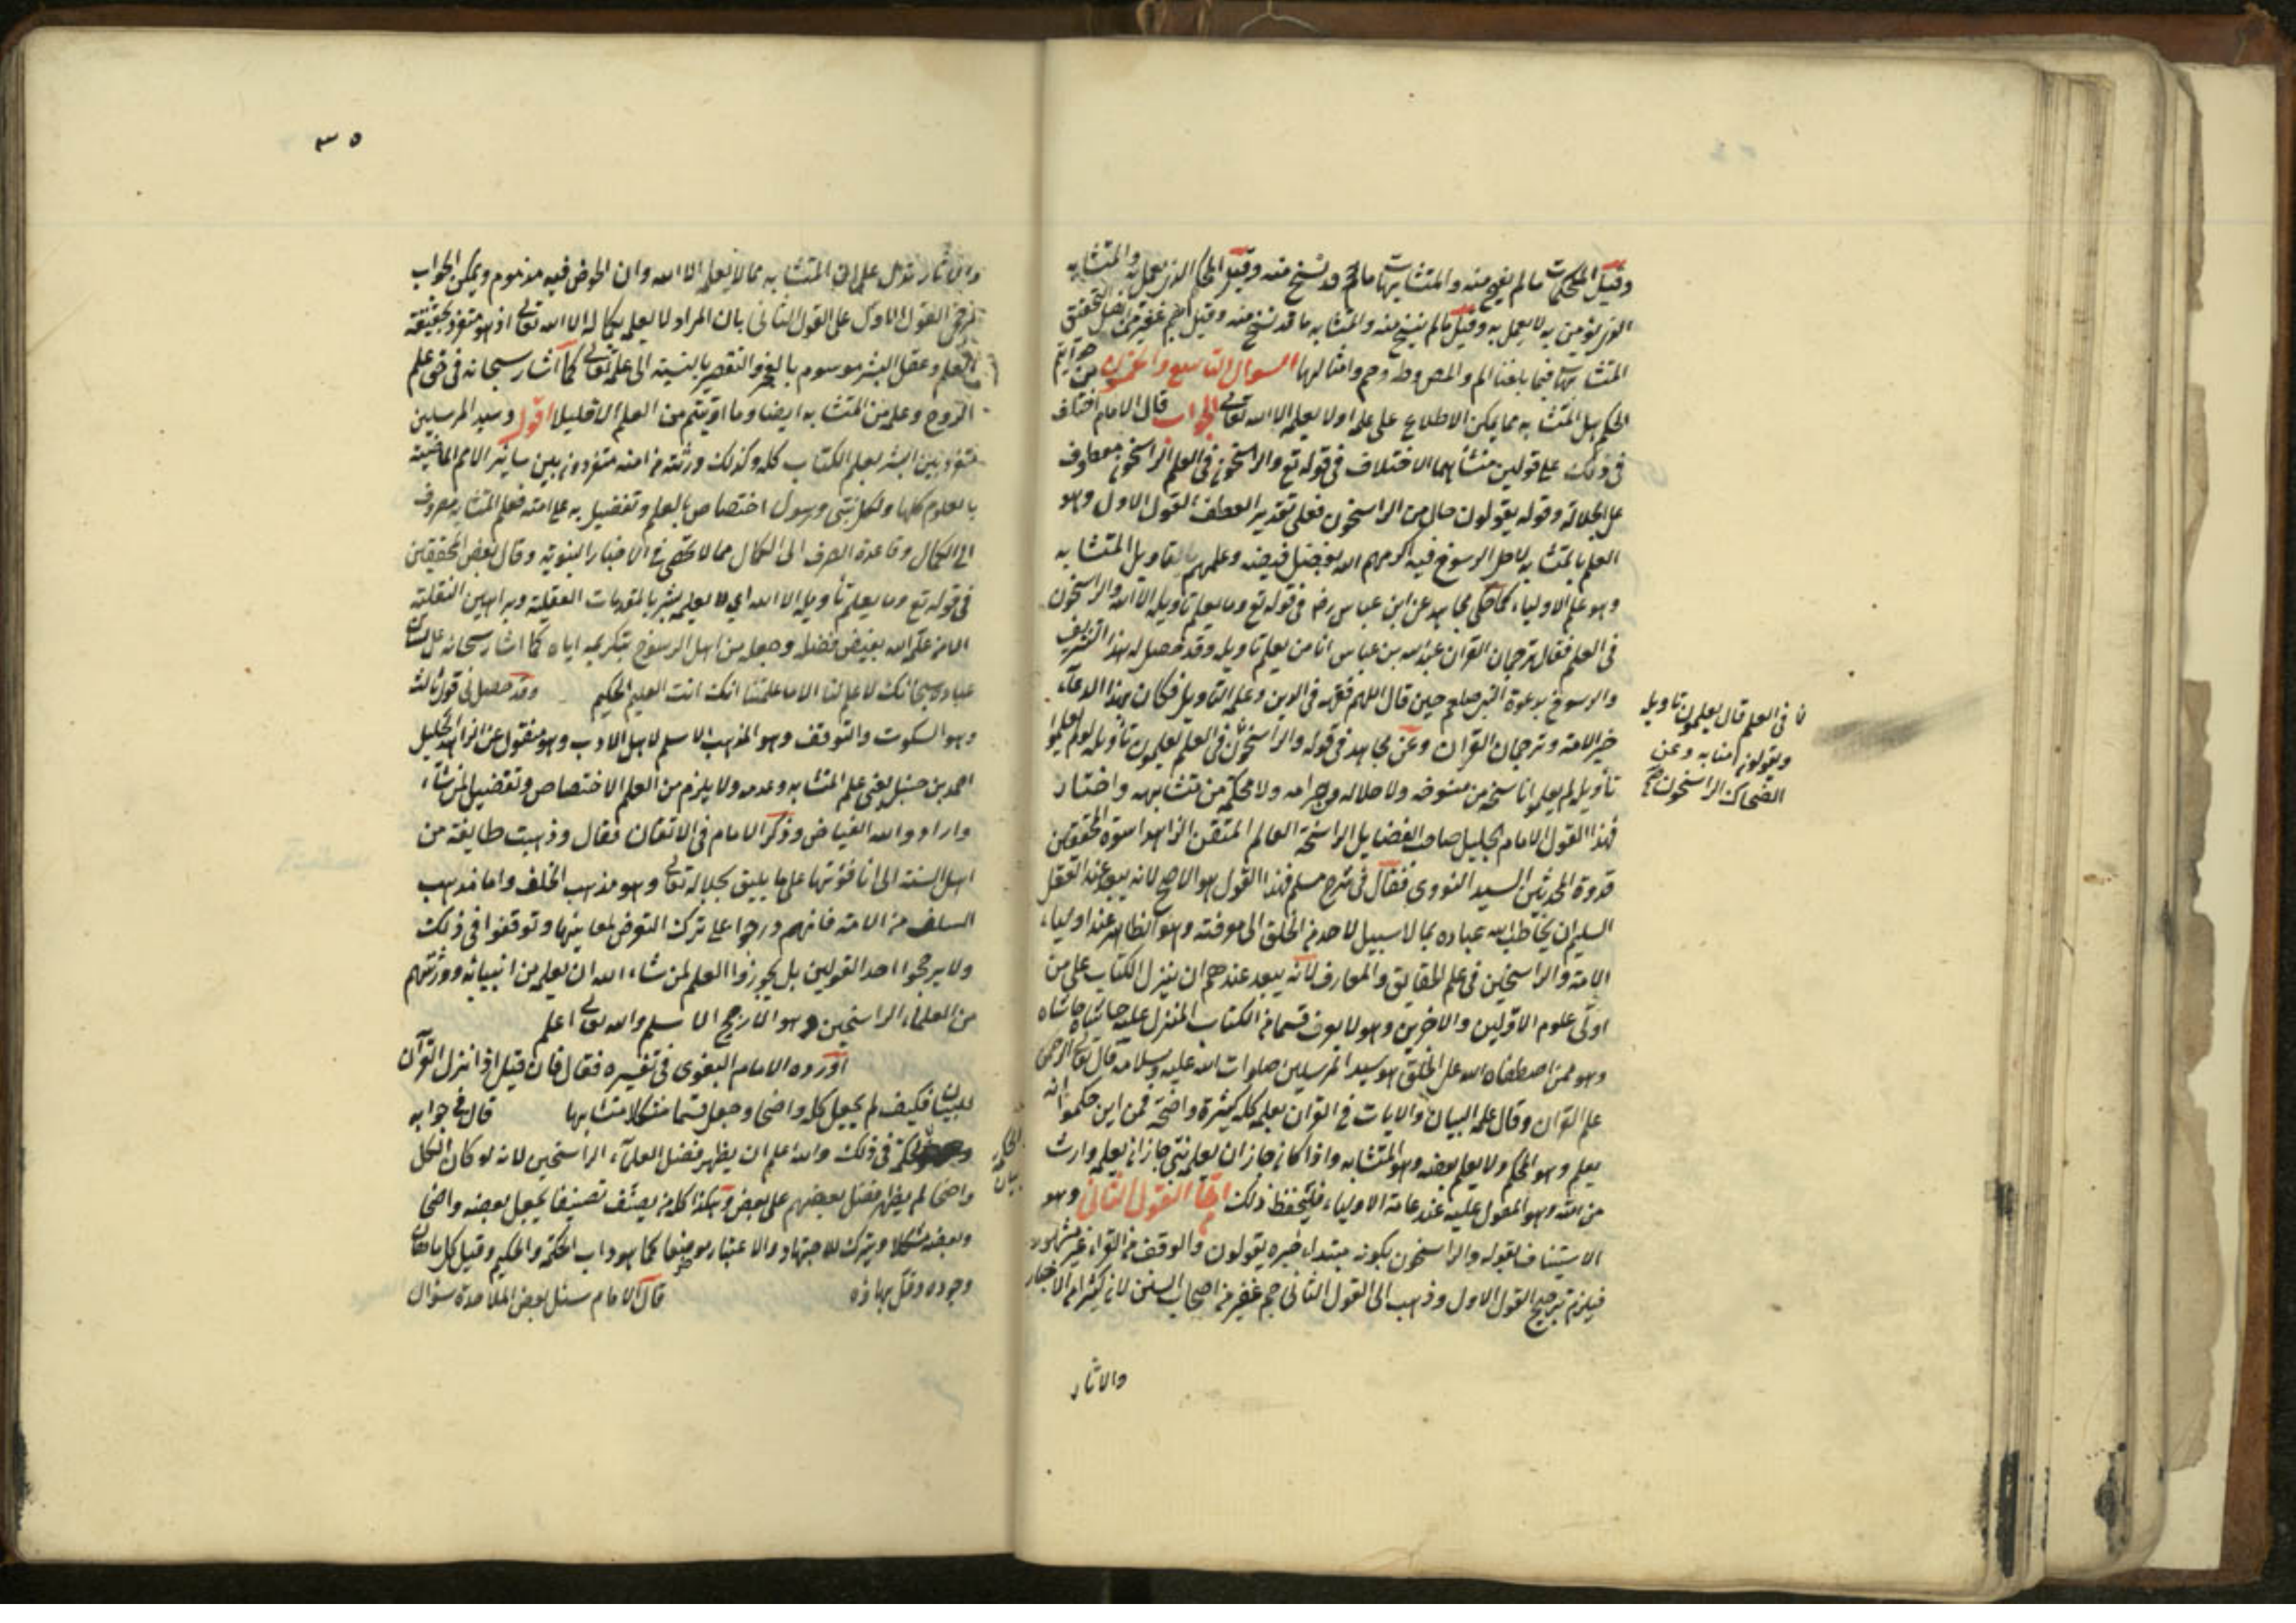 وقيل المحكمات ما لم ينسخ منه والمتشابهات ما قد نسخ منه وقيل المحكم الذي يعمل به والمتشابه
الذي يؤمن به لا يعمل به وقيل ما لم ينسخ منه والمتشابه ما قد نسخ منه وقيل
المتشابهات فيما بلغنا الم والمص وطه وحم وامثالها السوال التاسع
الحكيم هل المتشابه مما يمكن الاطلاع على علمه او لا يعلمه الا الله تعالى الجواب قال الامام اختلف
في ذلك على قولين منشأهما الاختلاف في قوله تع والراسخون في العلم الراسخون معطوف
على الجلالة وقوله يقولون حال من الراسخون فعلى تقدير العطف القول الاول وهو
العلم بالمتشابه لاهل الرسوخ فيه اكرمهم الله بفضل فيضه وعلمهم بالتاويل المتشابه
وهو علم الاولياء كما حكى مجاهد عن ابن عباس رض في قوله تع وما يعلم تاويله الا الله والراسخون
في العلم فقال ترجمان القران عبد الله بن عباس انا من يعلم تاويله وقد حصل له هذا التشريف
والرسوخ بدعوة النبي صلعم حين قال اللهم فقهه في الدين وعلمه التاويل فكان بهذا الدعاء
خير الامة وترجمان القران وعن مجاهد في قوله والراسخون في العلم يعلمون تأويله لو لم يعلموا
تأويله لم يعلموا ناسخه من منسوخه ولا حلاله من حرامه ولا محكمه من متشابهه واختار
فهذا القول الامام الجليل صاحب الفضايل الراسخة العالم المتقن الزاهد اسوة المحققين
قدوة المحدثين السيد النووي فقال في شرح مسلم فهذا القول هو الاصح لانه يبعد عند العقل
السليم ان يخاطب الله عباده بما لا سبيل لاحد من الخلق الى معرفته وهو الظاهر عند اولياء
الامة والراسخين في علم الحقايق والمعارف لانه يبعد عندهم ان ينزل الكتاب على من
اوتي علوم الاولين والاخرين وهو لا يعرف قسما من الكتاب المنزل عليه حاشاه حاشاه
وهو ممن اصطفاه الله على الخلق هو سيد المرسلين صلوات الله عليه وسلامه قال تعالى الرحمن
علم القران وقال علمه البيان والايات في القران بعلمه كله كثيرة واضحة فمن اين حكموا انه
يعلم وهو المحكم ولا يعلم بعضه وهو المتشابه واذا كان جاز ان يعلمه نبي جاز ان يعلمه وارث
من امته وهو المعول عليه عند عامة الاولياء فليتحفظ ذلك القول الثاني وهو
الاستيناف بقوله والراسخون بكونه مبتداء خبره يقولون والوقف من القراء غير مشهور
فيلزم ترجيح القول الاول وذهب الى القول الثاني جم غفير من اصحاب السنن لان كثيرا من الاخبار
والاثار
ن في العلم قال يعلمون تاويله
ويقولون امنا به وعن
الضحاك الراسخون
٣٥
والاثار تدل على ان المتشابه مما لا يعلمه الا الله وان الخوض فيه مذموم ويمكن الجواب
لمرجحي القول الاول على القول الثاني بان المراد لا يعلمه بكماله الا الله تعالى اذ هو متفرد بحقيقة
العلم وعقل البشر موسوم بالعجز والتقصير بالنسبة الى علمه تعالى كما اشار سبحانه في حق علم
الروح وعلمه من المتشابه ايضا وما اوتيتم من العلم الا قليلا اقول وسيد المرسلين
متفرد بين البشر بعلم الكتاب كله وكذلك ورثته من امته متفردون بين ساير الامم الماضية
بالعلوم كلها ولكل نبي ورسول اختصاص بالعلم وتفضيل به على امته فعلم المتشابه مصروف
الى الكمال وقاعدة الصرف الى الكمال مما لا يخفى في الاخبار النبوية وقال بعض المحققين
في قوله تع وما يعلم تأويله الا الله اي لا يعلمه بشر بالمقدمات العقلية وبراهين النقلية
الا من علمه الله بفيض فضله وجعله من اهل الرسوخ بتكريمه اياه كما اشار سبحانه على لسان
عباده سبحانك لا علم لنا الا ما علمتنا انك انت العليم الحكيم وقد حصل لي قول ثالث
وهو السكوت والتوقف وهو المذهب الاسلم لاهل الادب وهو منقول عن الزاهد الجليل
احمد بن حنبل يعني علم المتشابه وعدمه ولا يلزم من العلم الاختصاص وتفضيل لمن شاء
واراد والله الفياض وذكر الامام في الاتقان فقال وذهبت طايفة من
اهل السنة الى انا نؤولها على ما يليق بجلاله تعالى وهو مذهب الخلف واما مذهب
السلف من الامة فانهم درجوا على ترك التعرض لمعانيها وتوقفوا في ذلك
ولا يرجحوا احد القولين بل يجوزوا العلم لمن شاء الله ان يعلمه من انبيائه وورثتهم
من العلماء الراسخين وهو الارجح الاسلم والله تعالى اعلم
اورده الامام البغوي في تفسيره فقال فان قيل اذا نزل القرآن
للبيان فكيف لم يجعل كله واضحا وجعل قسما مشكلا متشابها قال في جوابه
الحكمة في ذلك والله اعلم ان يظهر فضل العلماء الراسخين لانه لو كان الكل
واضحا لم يظهر فضل بعضهم على بعض وهكذا كل من يصنف تصنيفا يجعل بعضه واضحا
وبعضه مشكلا ويترك للاجتهاد والاعتبار موضعا كما هو داب الحكمة والحكيم وقيل كل ما
وجوده وقل بهاؤه قال الامام سئل بعض الملاحدة سؤال